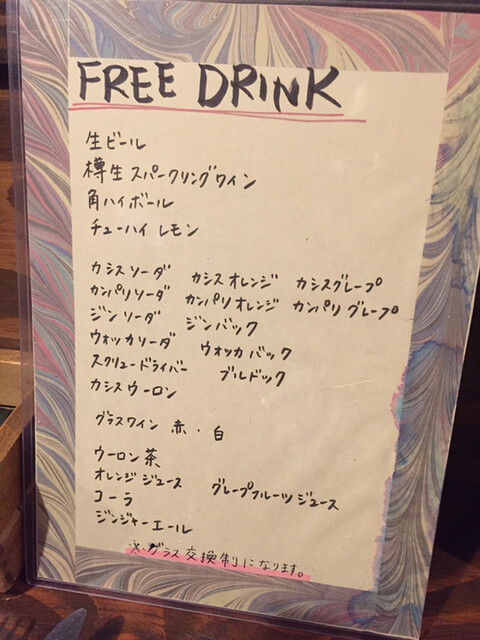 FREE DRINK
生ビール
樽生スパークリングワイン
角ハイボール
チューハイ レモン
カシスソーダ カシスオレンジ カシスグレープ
カンパリソーダ カンパリオレンジ カンパリグレープ
ジンソーダ ジンバック
ウォッカソーダ ウォッカバック
スクリュードライバー ブルドック
カシスウーロン
グラスワイン 赤・白
ウーロン茶
オレンジジュース グレープフルーツジュース
コーラ
ジンジャーエール
※グラス交換制になります。